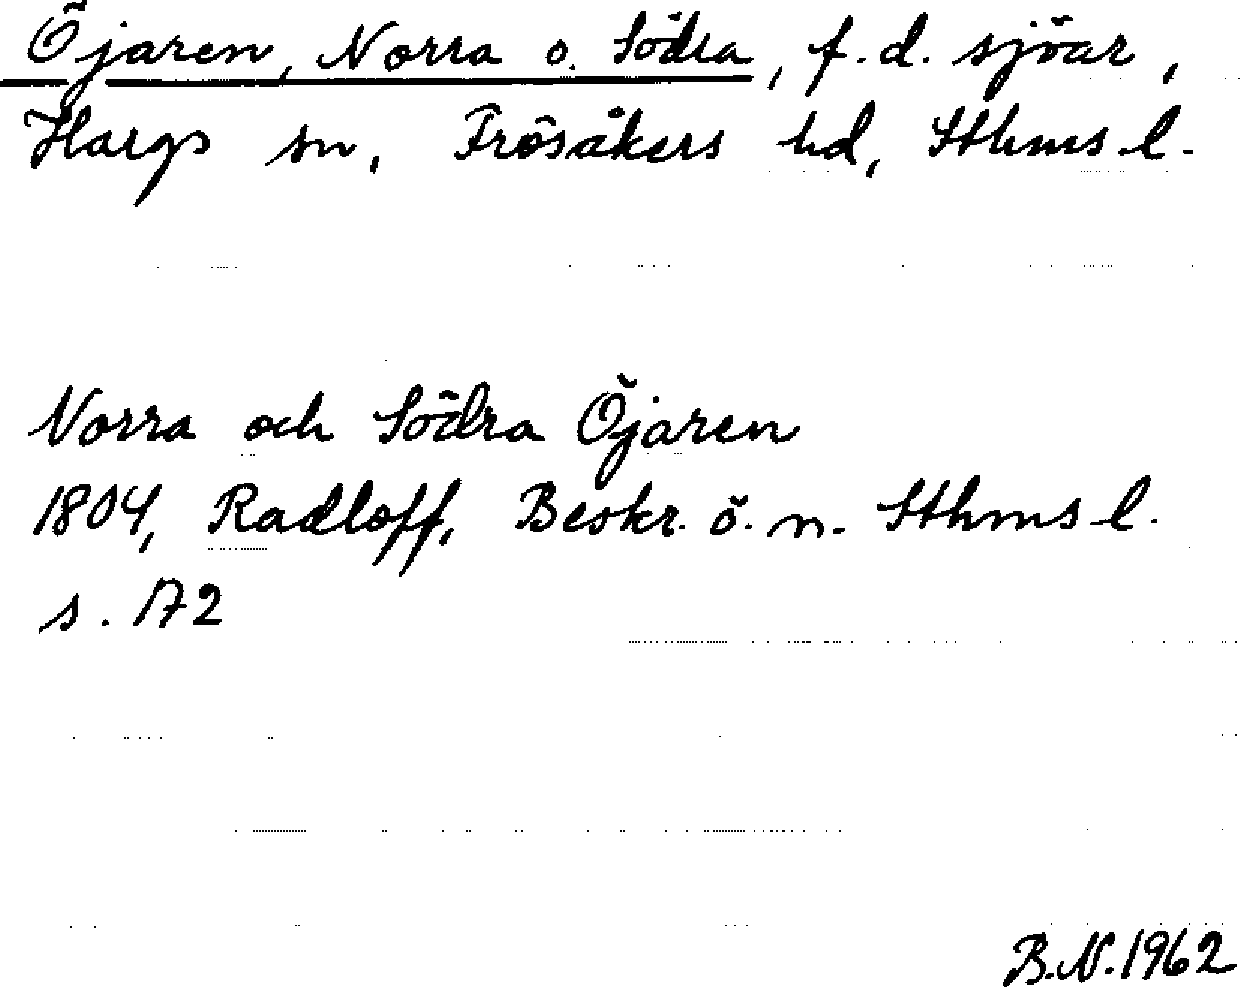 Öjaren, Norra o. Södra, f.d. sjöar,
Hargs sn, Frösåkers hd, Sthms l.
Norra och Södra Öjaren
1804, Radloff, Beskr. ö. n. Sthms l.
s. 172
B.N. 1962